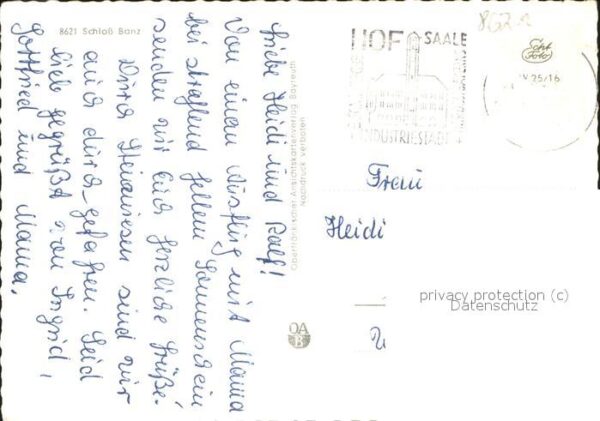 8621 Schloß Banz
Liebe Heidi und Ralf!
Von einem Ausflug mit Mama
bei strahlend hellem Sonnenschein
senden wir euch herzliche Grüße.
Durch Steinwiesen sind wir
auch durch-gefahren. Seid
lieb gegrüßt von Ingrid,
Gottfried und Mama.
Oberfränkischer Ansichtskartenverlag Bayreuth
Nachdruck verboten
OA
B
HOF SAALE
INDUSTRIESTADT
8621
Echt
Foto
W 25/16
Frau
Heidi
privacy protection (c)
Datenschutz